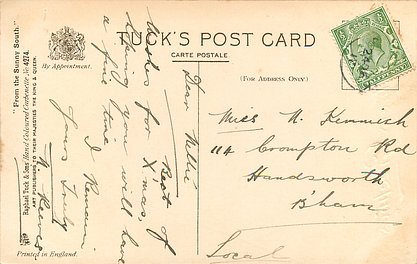 TUCK'S POST CARD
CARTE POSTALE
(FOR ADDRESS ONLY)
By Appointment.
"From the Sunny South."
Raphael Tuck & Sons' Hand Coloured Cartonette No. 4274.
ART PUBLISHERS TO THEIR MAJESTIES THE KING & QUEEN.
Printed in England.
Dear Nellie
Best of
Wishes for X'mas,
hoping you will have
a fine time
I Remain
Yours Truly
N Reeves
Miss N. Kemmish
114 Crompton Rd
Handsworth
B'ham
Local